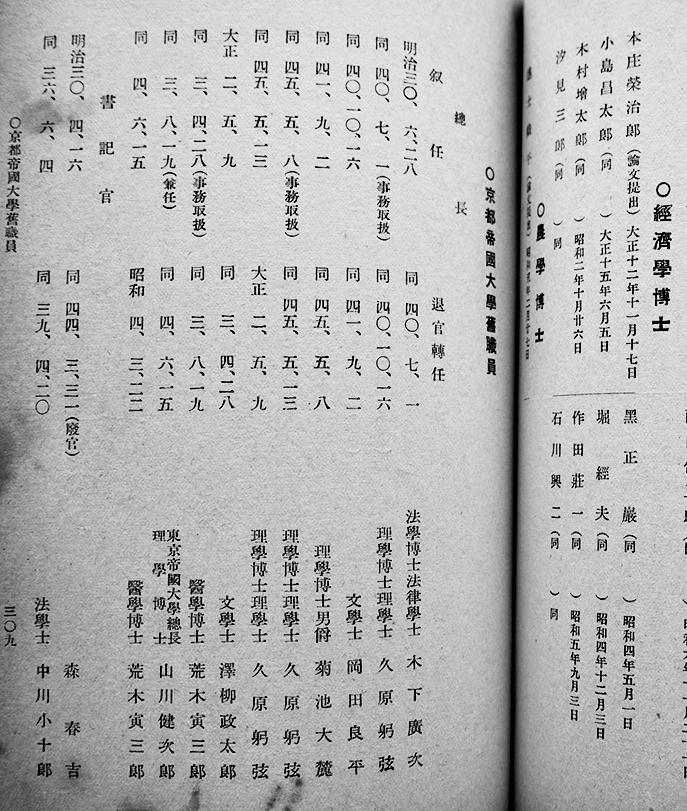 ○經濟學博士
本庄榮治郎(論文提出) 大正十二年十一月十七日
小島昌太郎(同 ) 大正十五年六月五日
木村增太郎(同 ) 昭和二年十月廿六日
汐見三郎(同 ) 同
黑正巖(同 ) 昭和四年五月一日
堀經夫(同 ) 昭和四年十二月三日
作田莊一(同 ) 昭和五年九月三日
石川興二(同 ) 同
○農學博士
○京都帝國大學舊職員
總長
叙任 退官轉任
明治三〇、六、二八 同四〇、七、一 法學博士法律學士 木下廣次
同四〇、七、一(事務取扱) 同四〇、一〇、一六 理學博士理學士 久原躬弦
同四〇、一〇、一六 同四一、九、二 文學士 岡田良平
同四一、九、二 同四五、五、八 理學博士男爵 菊池大麓
同四五、五、八(事務取扱) 同四五、五、一三 理學博士理學士 久原躬弦
同四五、五、一三 大正二、五、九 理學博士理學士 久原躬弦
大正二、五、九 同三、四、二八 文學士 澤柳政太郎
同三、四、二八(事務取扱) 同三、八、一九 醫學博士 荒木寅三郎
同三、八、一九(兼任) 同四、六、一五 東京帝國大學總長 理學博士 山川健次郎
同四、六、一五 昭和四、三、二二 醫學博士 荒木寅三郎
書記官
明治三〇、四、一六 同四四、三、三一(廢官) 森春吉
同三六、六、四 同三九、四、二〇 法學士 中川小十郎
○京都帝國大學舊職員
三〇九